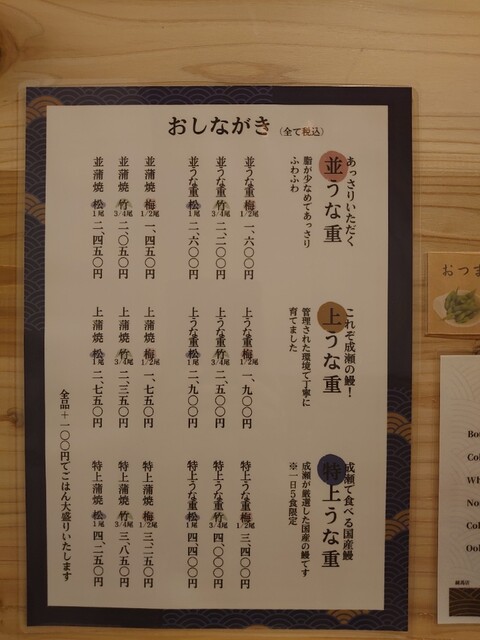 おしながき（全て税込）
あっさりいただく
並うな重
脂が少なめであっさり
ふわふわ
並うな重 梅 1/2尾 一、六〇〇円
並うな重 竹 3/4尾 二、二〇〇円
並うな重 松 1尾 二、六〇〇円
並蒲焼 梅 1/2尾 一、四五〇円
並蒲焼 竹 3/4尾 二、〇五〇円
並蒲焼 松 1尾 二、四五〇円
これぞ成瀬の鰻！
上うな重
管理された環境で丁寧に
育てました
上うな重 梅 1/2尾 一、九〇〇円
上うな重 竹 3/4尾 二、五〇〇円
上うな重 松 1尾 二、九〇〇円
上蒲焼 梅 1/2尾 一、七五〇円
上蒲焼 竹 3/4尾 二、三五〇円
上蒲焼 松 1尾 二、七五〇円
成瀬で食べる国産鰻
特上うな重
成瀬が厳選した国産の鰻です
※一日5食限定
特上うな重 梅 1/2尾 三、四〇〇円
特上うな重 竹 3/4尾 四、〇〇〇円
特上うな重 松 1尾 四、四〇〇円
特上蒲焼 梅 1/2尾 三、二五〇円
特上蒲焼 竹 3/4尾 三、八五〇円
特上蒲焼 松 1尾 四、二五〇円
全品＋一〇〇円でごはん大盛りいたします
おつま